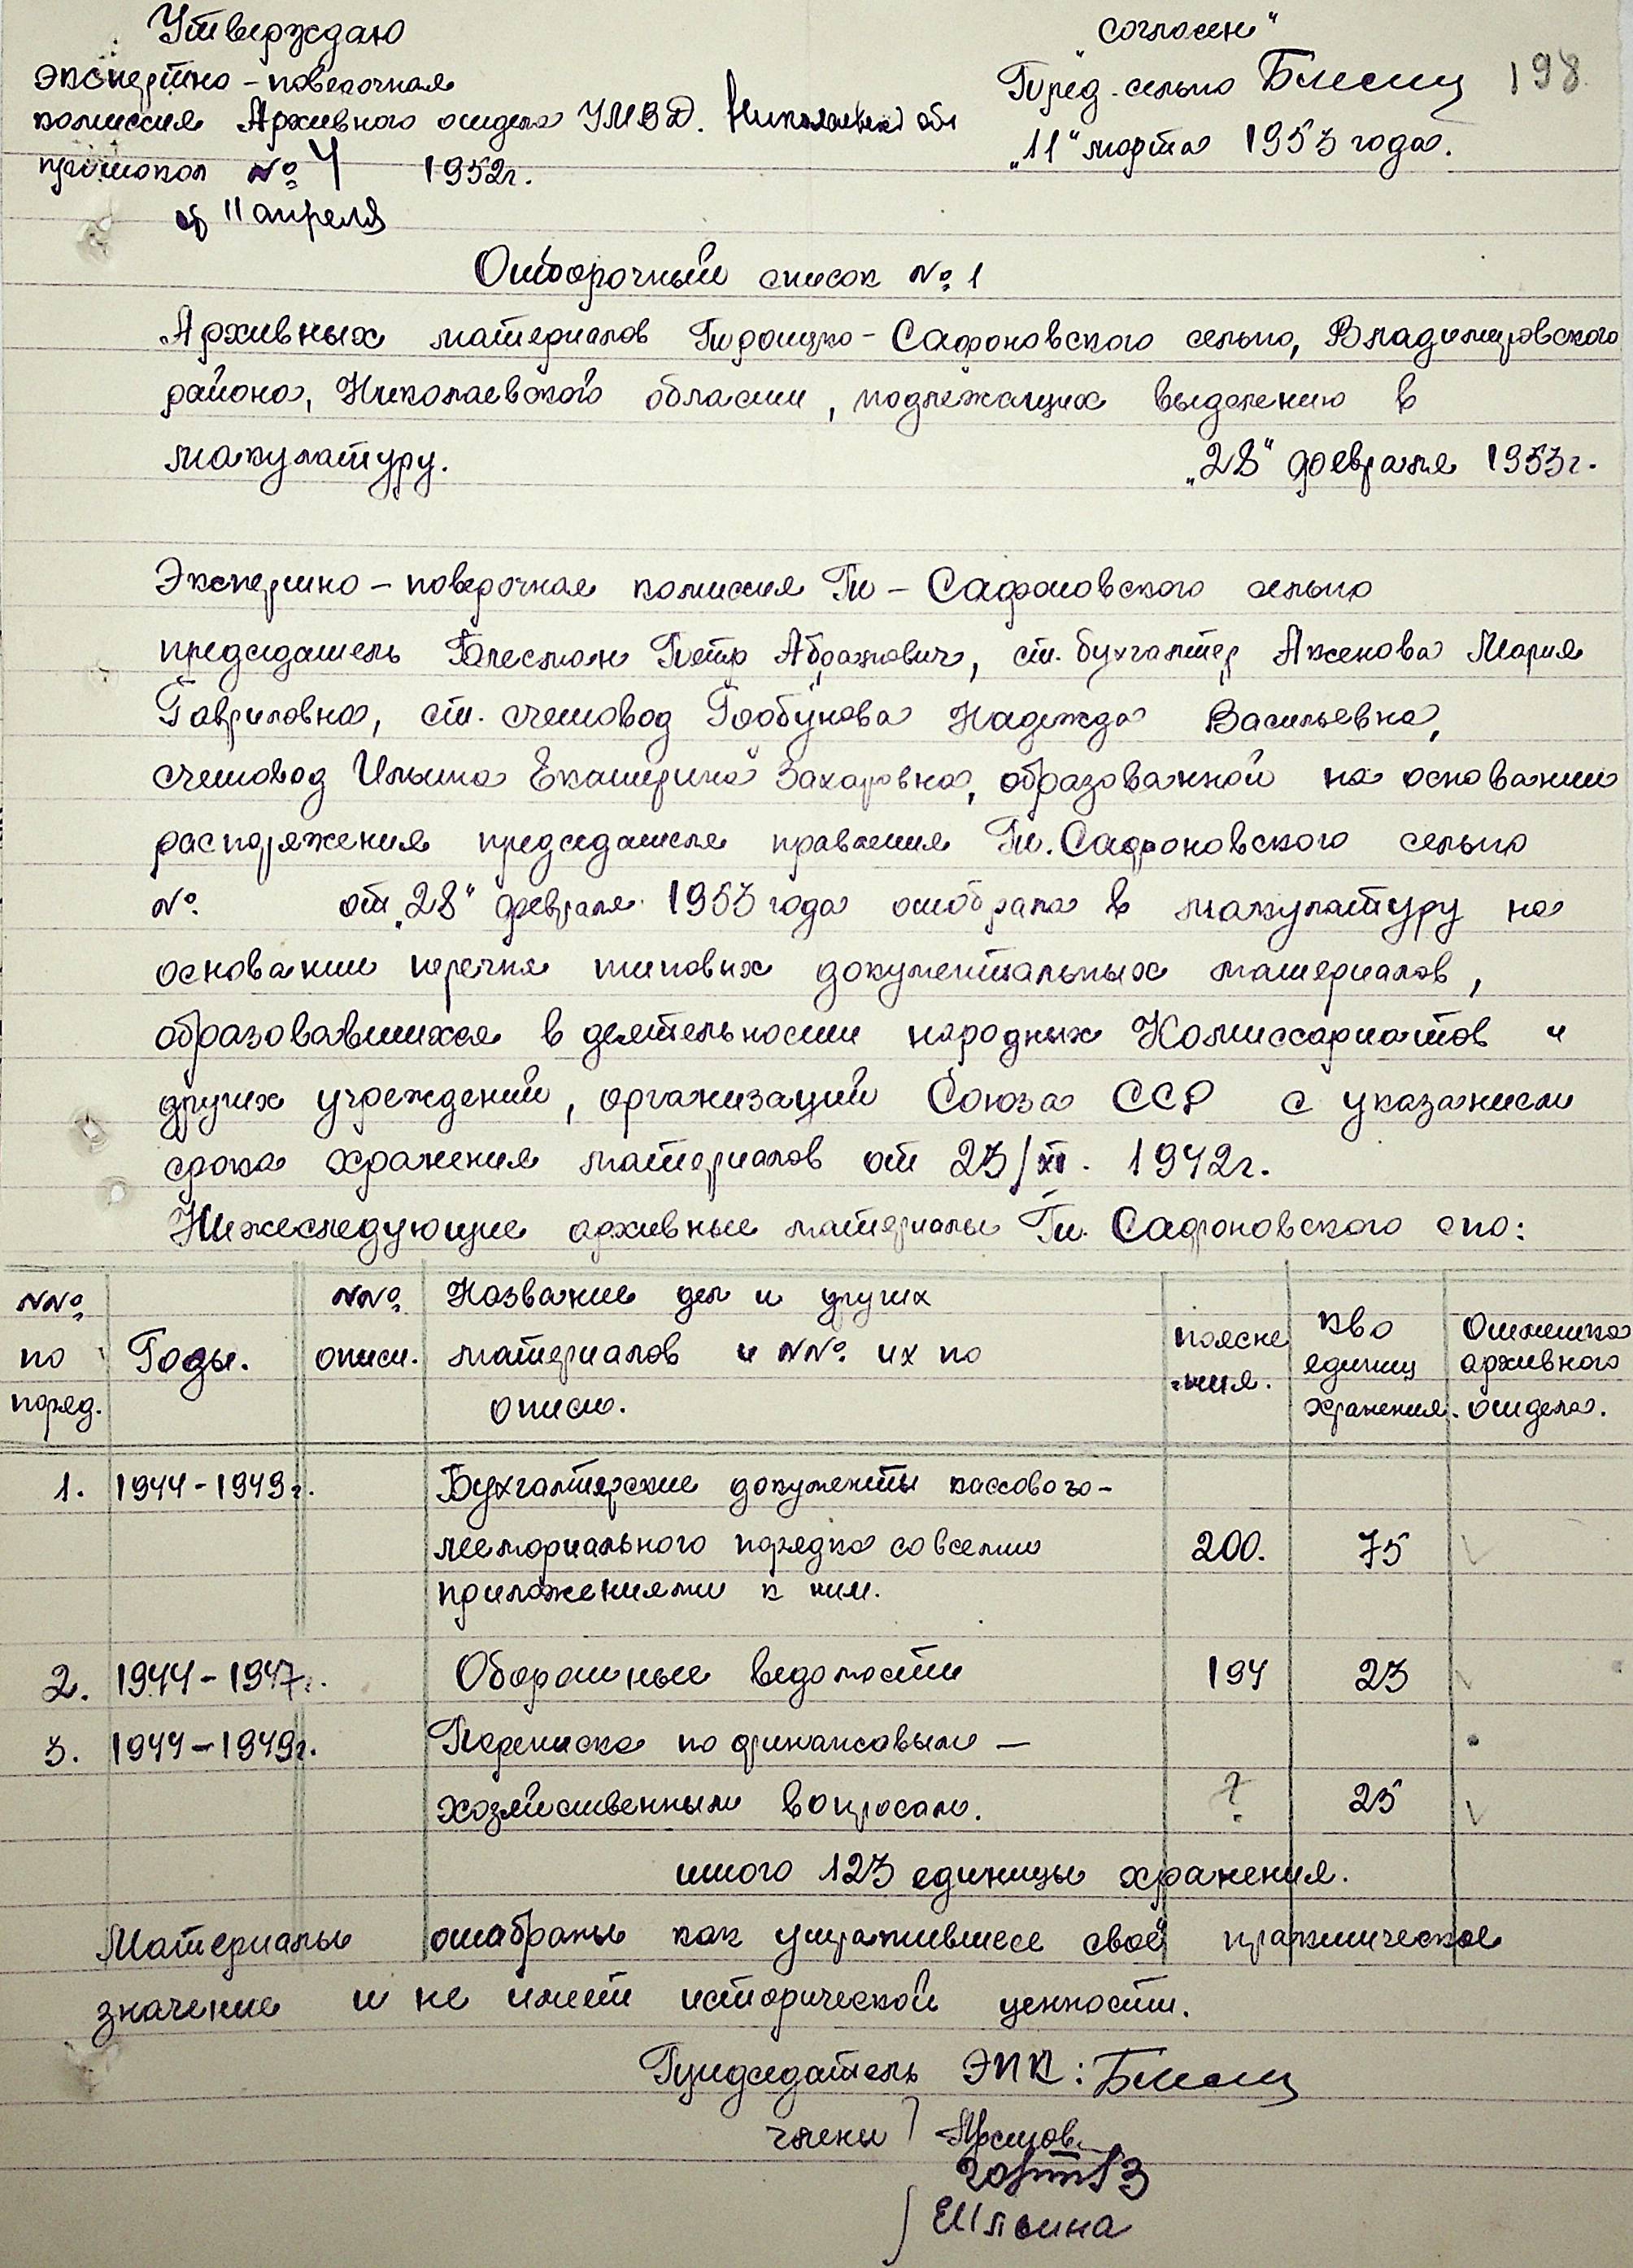 Утверждаю
экспертно - поверочная
комиссия Архивного отдела УМВД. Николаевской обл
протокол № 4 1952г.
от 11 апреля
"согласен"
Пред. сельпо
198
"11" марта 1953 года.
Отборочный список № 1
Архивных материалов Троицко - Сафоновского сельпо, Владимировского
района, Николаевской области, подлежащих выделению в
макулатуру.
"28" февраля 1953г.
Экспертно - поверочная комиссия Тр - Сафоновского сельпо
председатель Блесман Пётр Абрамович, ст. бухгалтер Аксенова Мария
Гавриловна, ст. счетовод Горбунова Надежда Васильевна,
счетовод Ильина Екатерина Захаровна, образованной на основании
распоряжения председателя правления Тр. Сафроновского сельпо
№ от "28" февраля 1953 года отобрала в макулатуру на
основании перечня типовых документальных материалов,
образовавшихся в деятельности народных Комиссариатов и
других учреждений, организаций Союза ССР с указанием
срока хранения материалов от 23/XI. 1942г.
Нижеследующие архивные материалы Тр. Сафроновского спо:
№№ по поряд.
Годы.
№№ описи.
Название дел и других
материалов и №№ их по
описи.
поясне
ния.
кво
единиц
хранения.
Отметка
архивного
отдела.
1. 1944-1949г. Бухгалтерские документы кассового-
мемориального порядка со всеми 200. 75
приложениями к ним.
2. 1944-1947г. Оборотные ведомости 194 23
3. 1944-1949г. Переписка по финансовым -
хозяйственным вопросам. ? 25
итого 123 единицы хранения.
Материалы отобраны как утратившее своё практическое
значение и не имеет исторической ценности.
Председатель ЭПК:
члены
ЕИльина